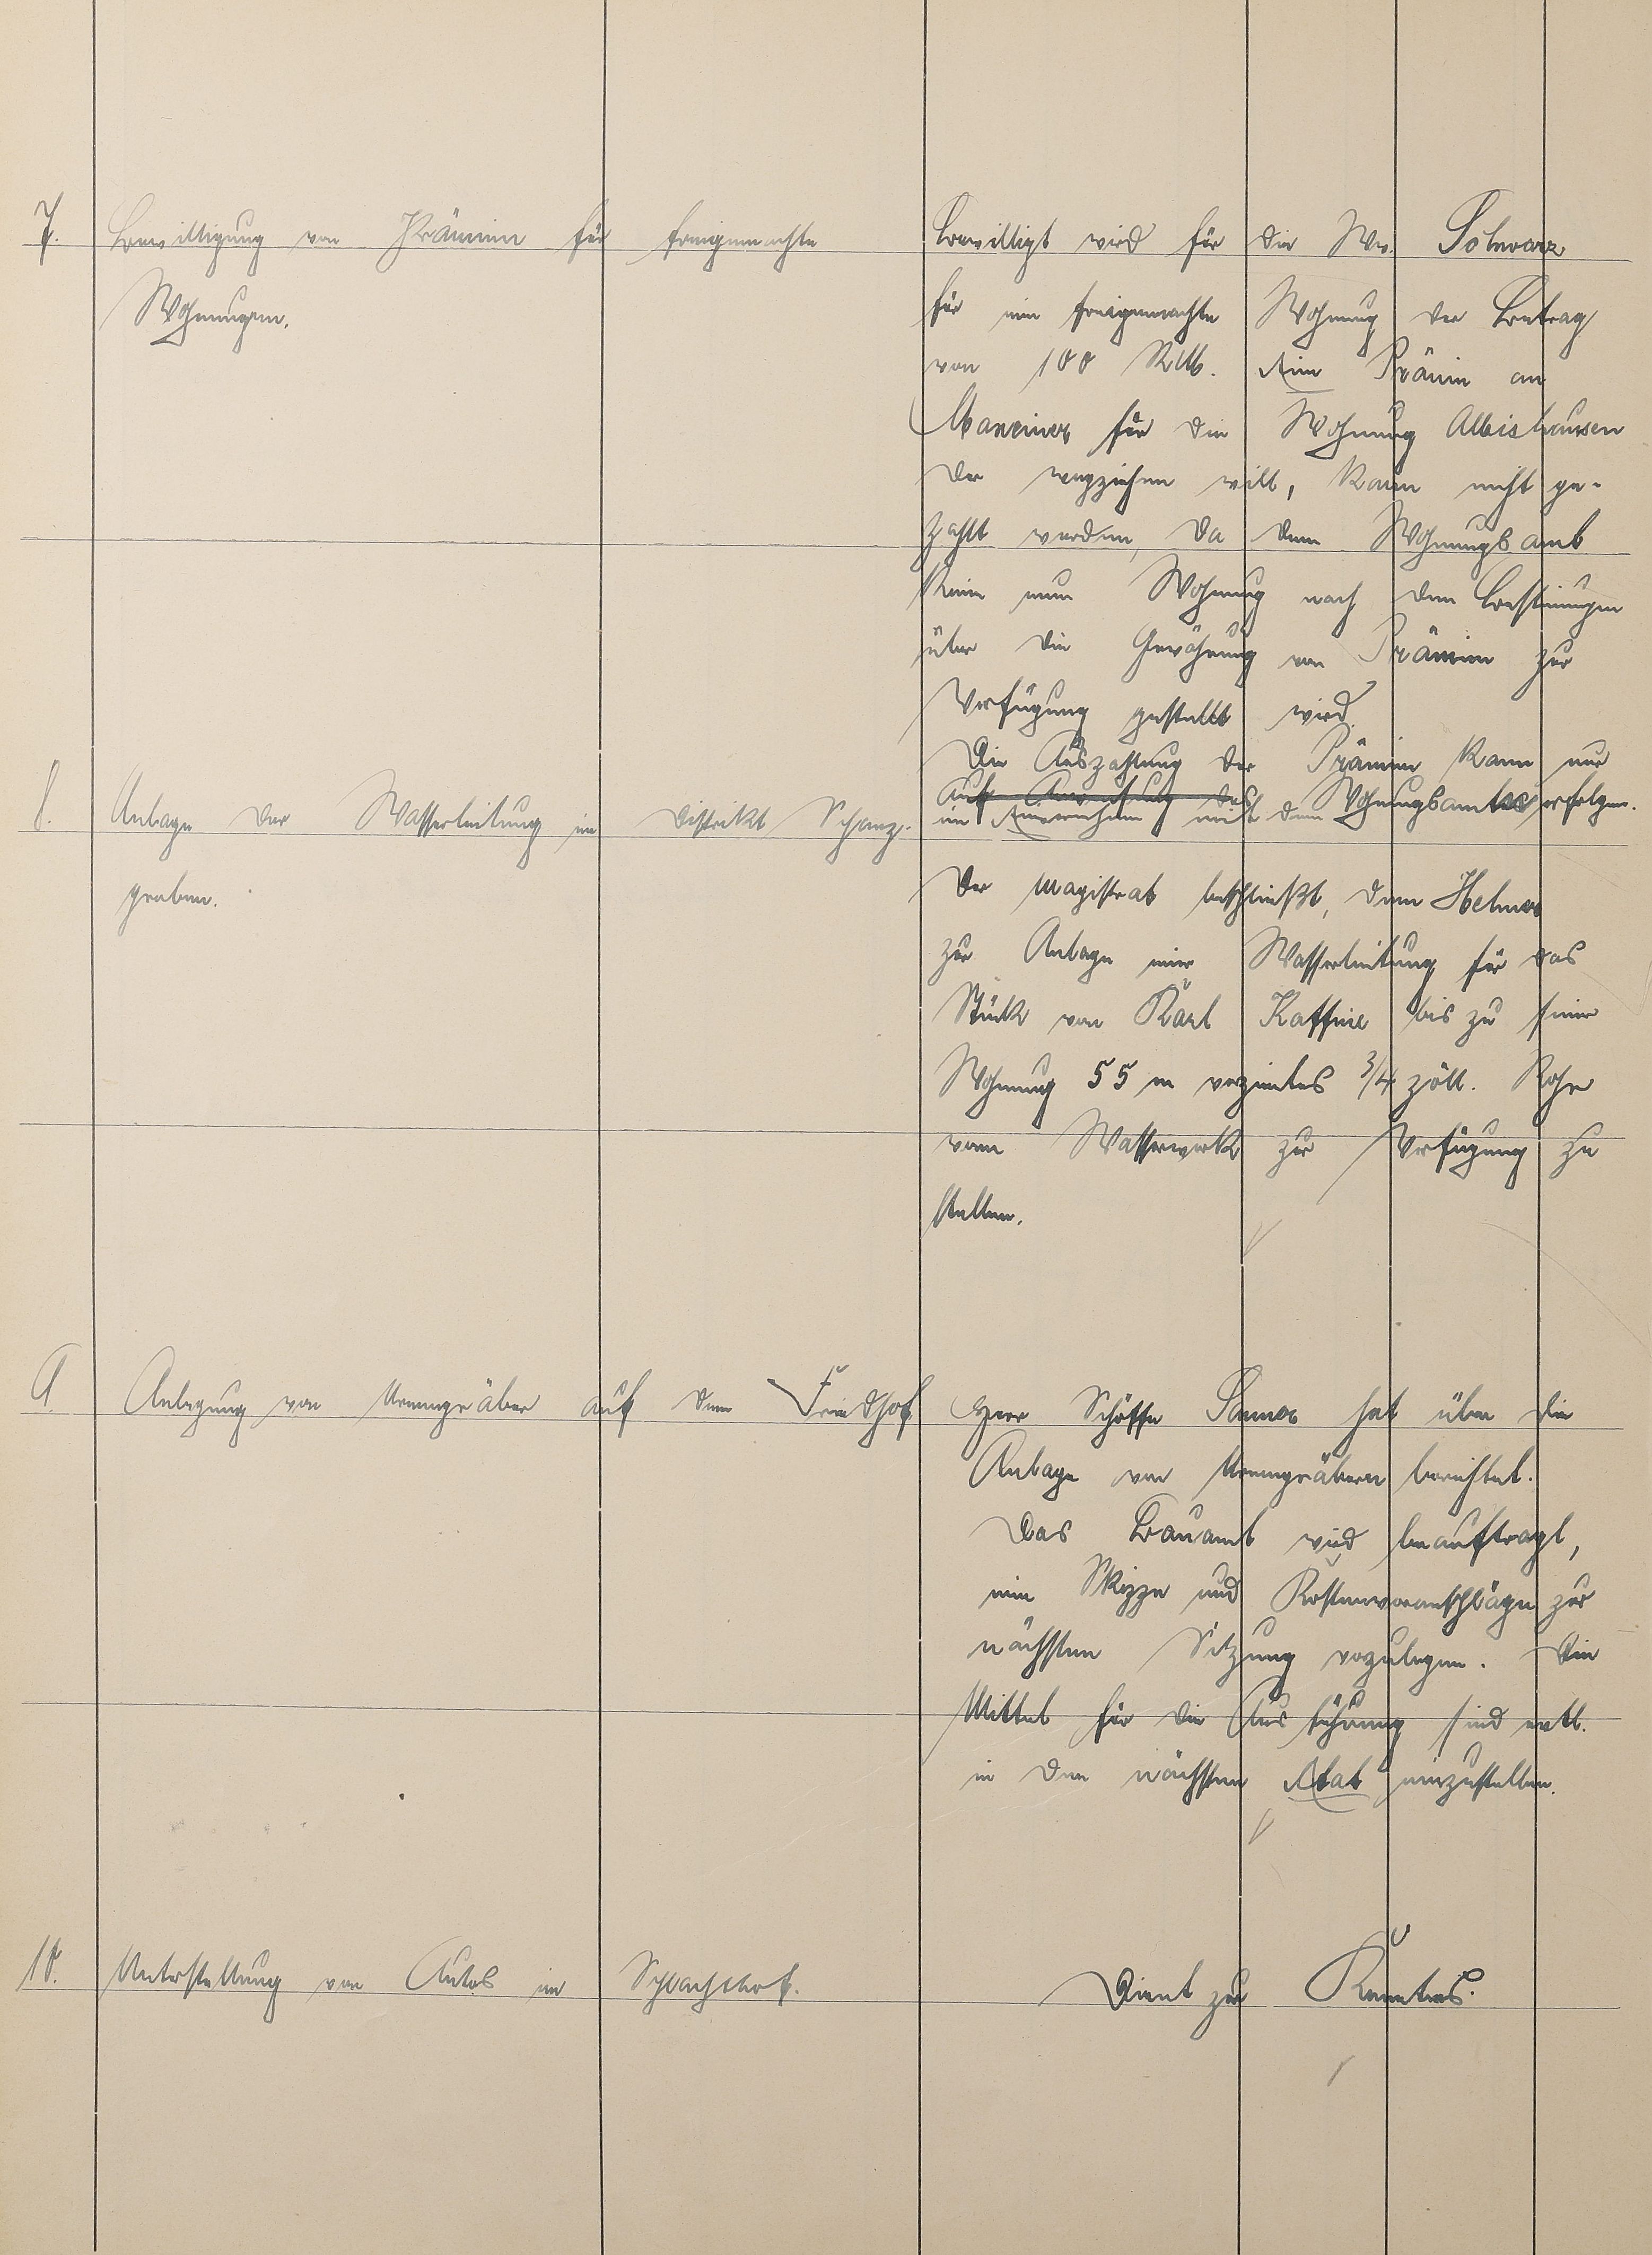 7.
Bewilligung von Prämien für freigemachte
Wohnungen.
Bewilligt wird für die Ww. Schwarz
für eine freigemachte Wohnung der Betrag
von 100 RM. Eine Prämie an
für die Wohnung Albishausen
der wegziehen will, kann nicht ge-
zahlt werden, da dem Wohnungsamt
keine neue Wohnung nach den Bestimmungen
über die Gewährung von Prämien zur
Verfügung gestellt wird.
Die Auszahlung der Prämien kann nur
auf Anweisung des Wohnungsamtes erfolgen.
im Einvernehmen mit dem
8.
Anlage der Wasserleitung im Distrikt Schanz-
graben.
Der Magistrat beschließt, dem Helmer
zur Anlage einer Wasserleitung für das
Stück von Karl bis zu seiner
Wohnung 55 m verzinktes 3/4 zöll. Rohr
vom Wasserwerk zur Verfügung zu
stellen.
9.
Anlegung von Urnengräber auf dem Friedhof
Herr Schöffe hat über die
Anlage von Urnengräbern berichtet.
Das Bauamt wird beauftragt,
eine Skizze und Kostenvoranschläge zur
nächsten Sitzung vorzulegen. Die
Mittel für die Ausführung sind evtl.
in den nächsten Etat einzustellen.
10.
Unterstellung von Autos im Schlachthof.
Dient zur Kenntnis.